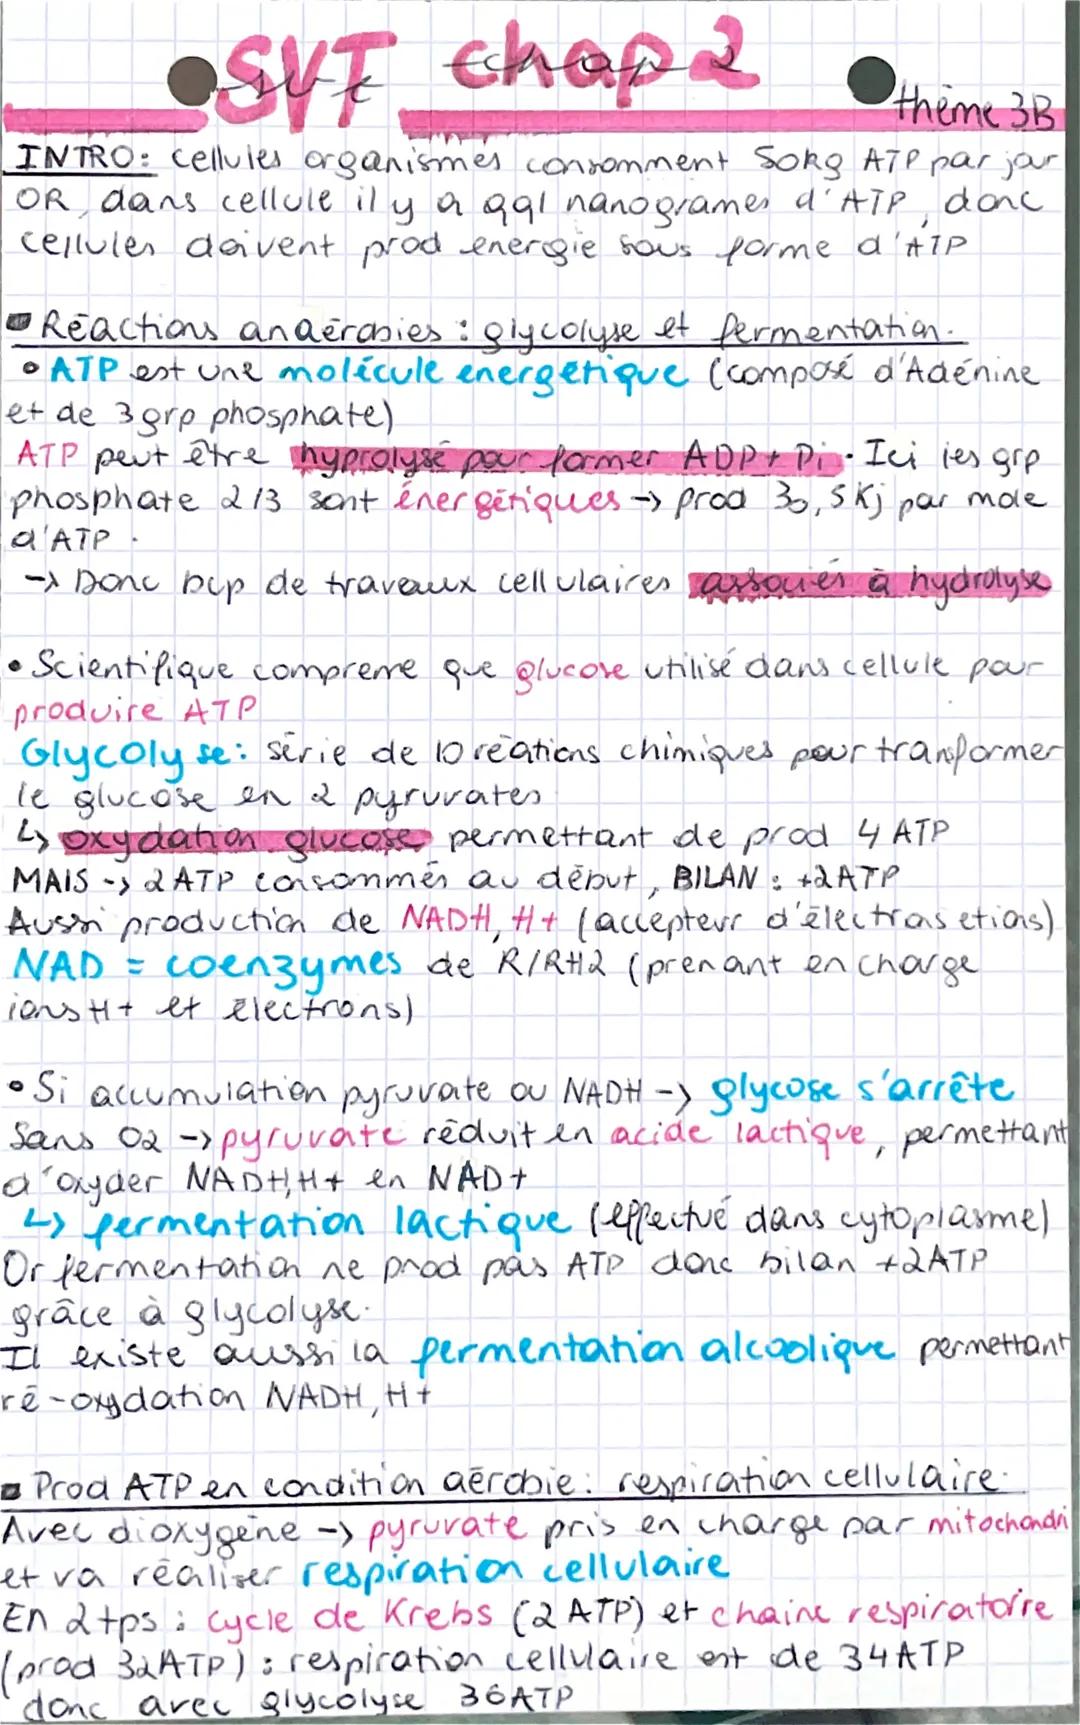 SVT chap 2
thème 3B
INTRO: cellules organismes consomment 50kg ATP par jour
OR, dans cellule il y a qql nanogrames d'ATP, donc
cellules doivent prod energie sous forme d'ATP
Réactions anaérobies : glycolyse et fermentation.
• ATP est une molécule energétique (composé d'Adénine
et de 3 grp phosphate)
ATP peut être hyprolysé pour former ADP + Pi. Ici les grp
phosphate 2/3 sont énergétiques -> prod 30,5 Kj par mole
d'ATP.
-> Donc bcp de travaux cellulaires associés à hydrolyse
• Scientifique compreme que glucose utilisé dans cellule pour
produire ATP
Glycolyse: série de 10 réations chimiques pour transformer
le glucose en 2 pyruvates
↳ oxydation glucose permettant de prod 4 ATP
MAIS -> 2 ATP consommés au début, BILAN : +2ATP
Aussi production de NADH, H+ (accepteur d'électrons et ions)
NAD = coenzymes de R/RH2 (prenant en charge
ions H+ et électrons)
• Si accumulation pyruvate ou NADH -> glycose s'arrête
Sans O2 -> pyruvate réduit en acide lactique, permettant
d'oxyder NADH, H+ en NAD+
↳ fermentation lactique (effectué dans cytoplasme)
Or fermentation ne prod pas ATP donc bilan +2ATP
grâce à glycolyse.
Il existe aussi la fermentation alcoolique permettant
ré-oxydation NADH, H+
Prod ATP en condition aérobie : respiration cellulaire.
Avec dioxygène -> pyruvate pris en charge par mitochondri
et va réaliser respiration cellulaire
En 2 tps : cycle de Krebs (2 ATP) et chaine respiratoire
(prod 32ATP) : respiration cellulaire est de 34 ATP
donc avec glycolyse 36ATP